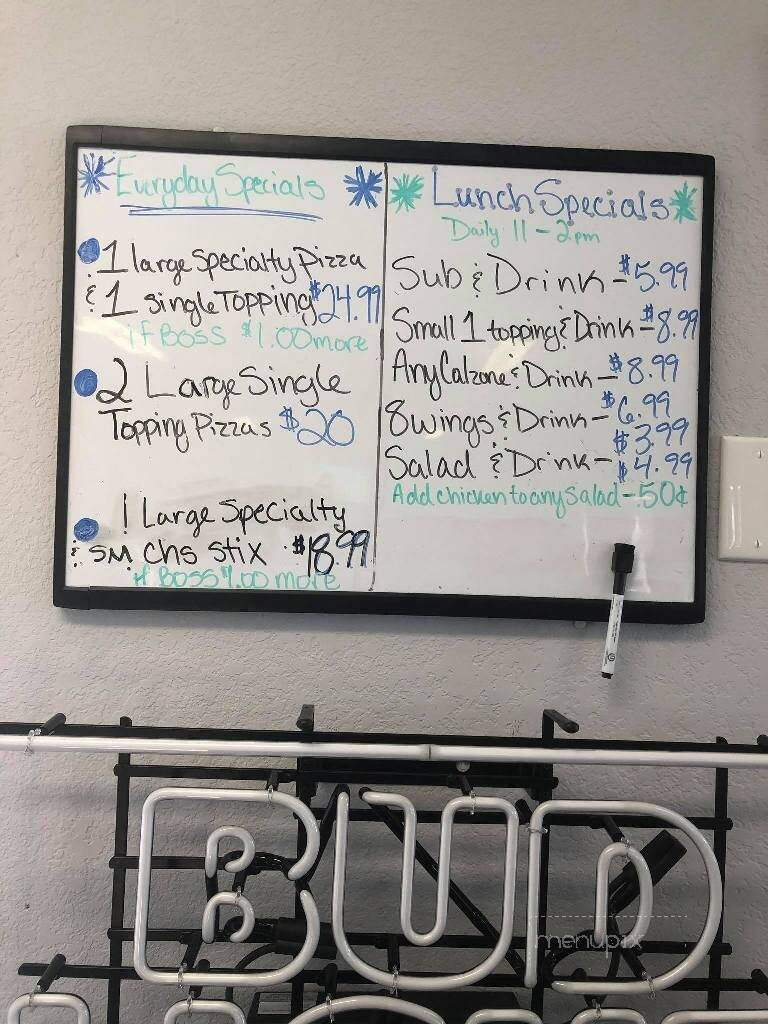 Everyday Specials
1 large specialty Pizza
& 1 single Topping $24.99
if Boss $1.00 more
2 Large Single
Topping Pizzas $20
1 Large Specialty
& SM chs stix $18.99
if Boss $1.00 more
Lunch Specials
Daily 11 - 2pm
Sub & Drink - $5.99
Small 1 topping & Drink - $8.99
Any Calzone & Drink - $8.99
8 wings & Drink - $6.99
$3.99
Salad & Drink - $4.99
Add chicken to any salad - .50¢
BUD
menupix